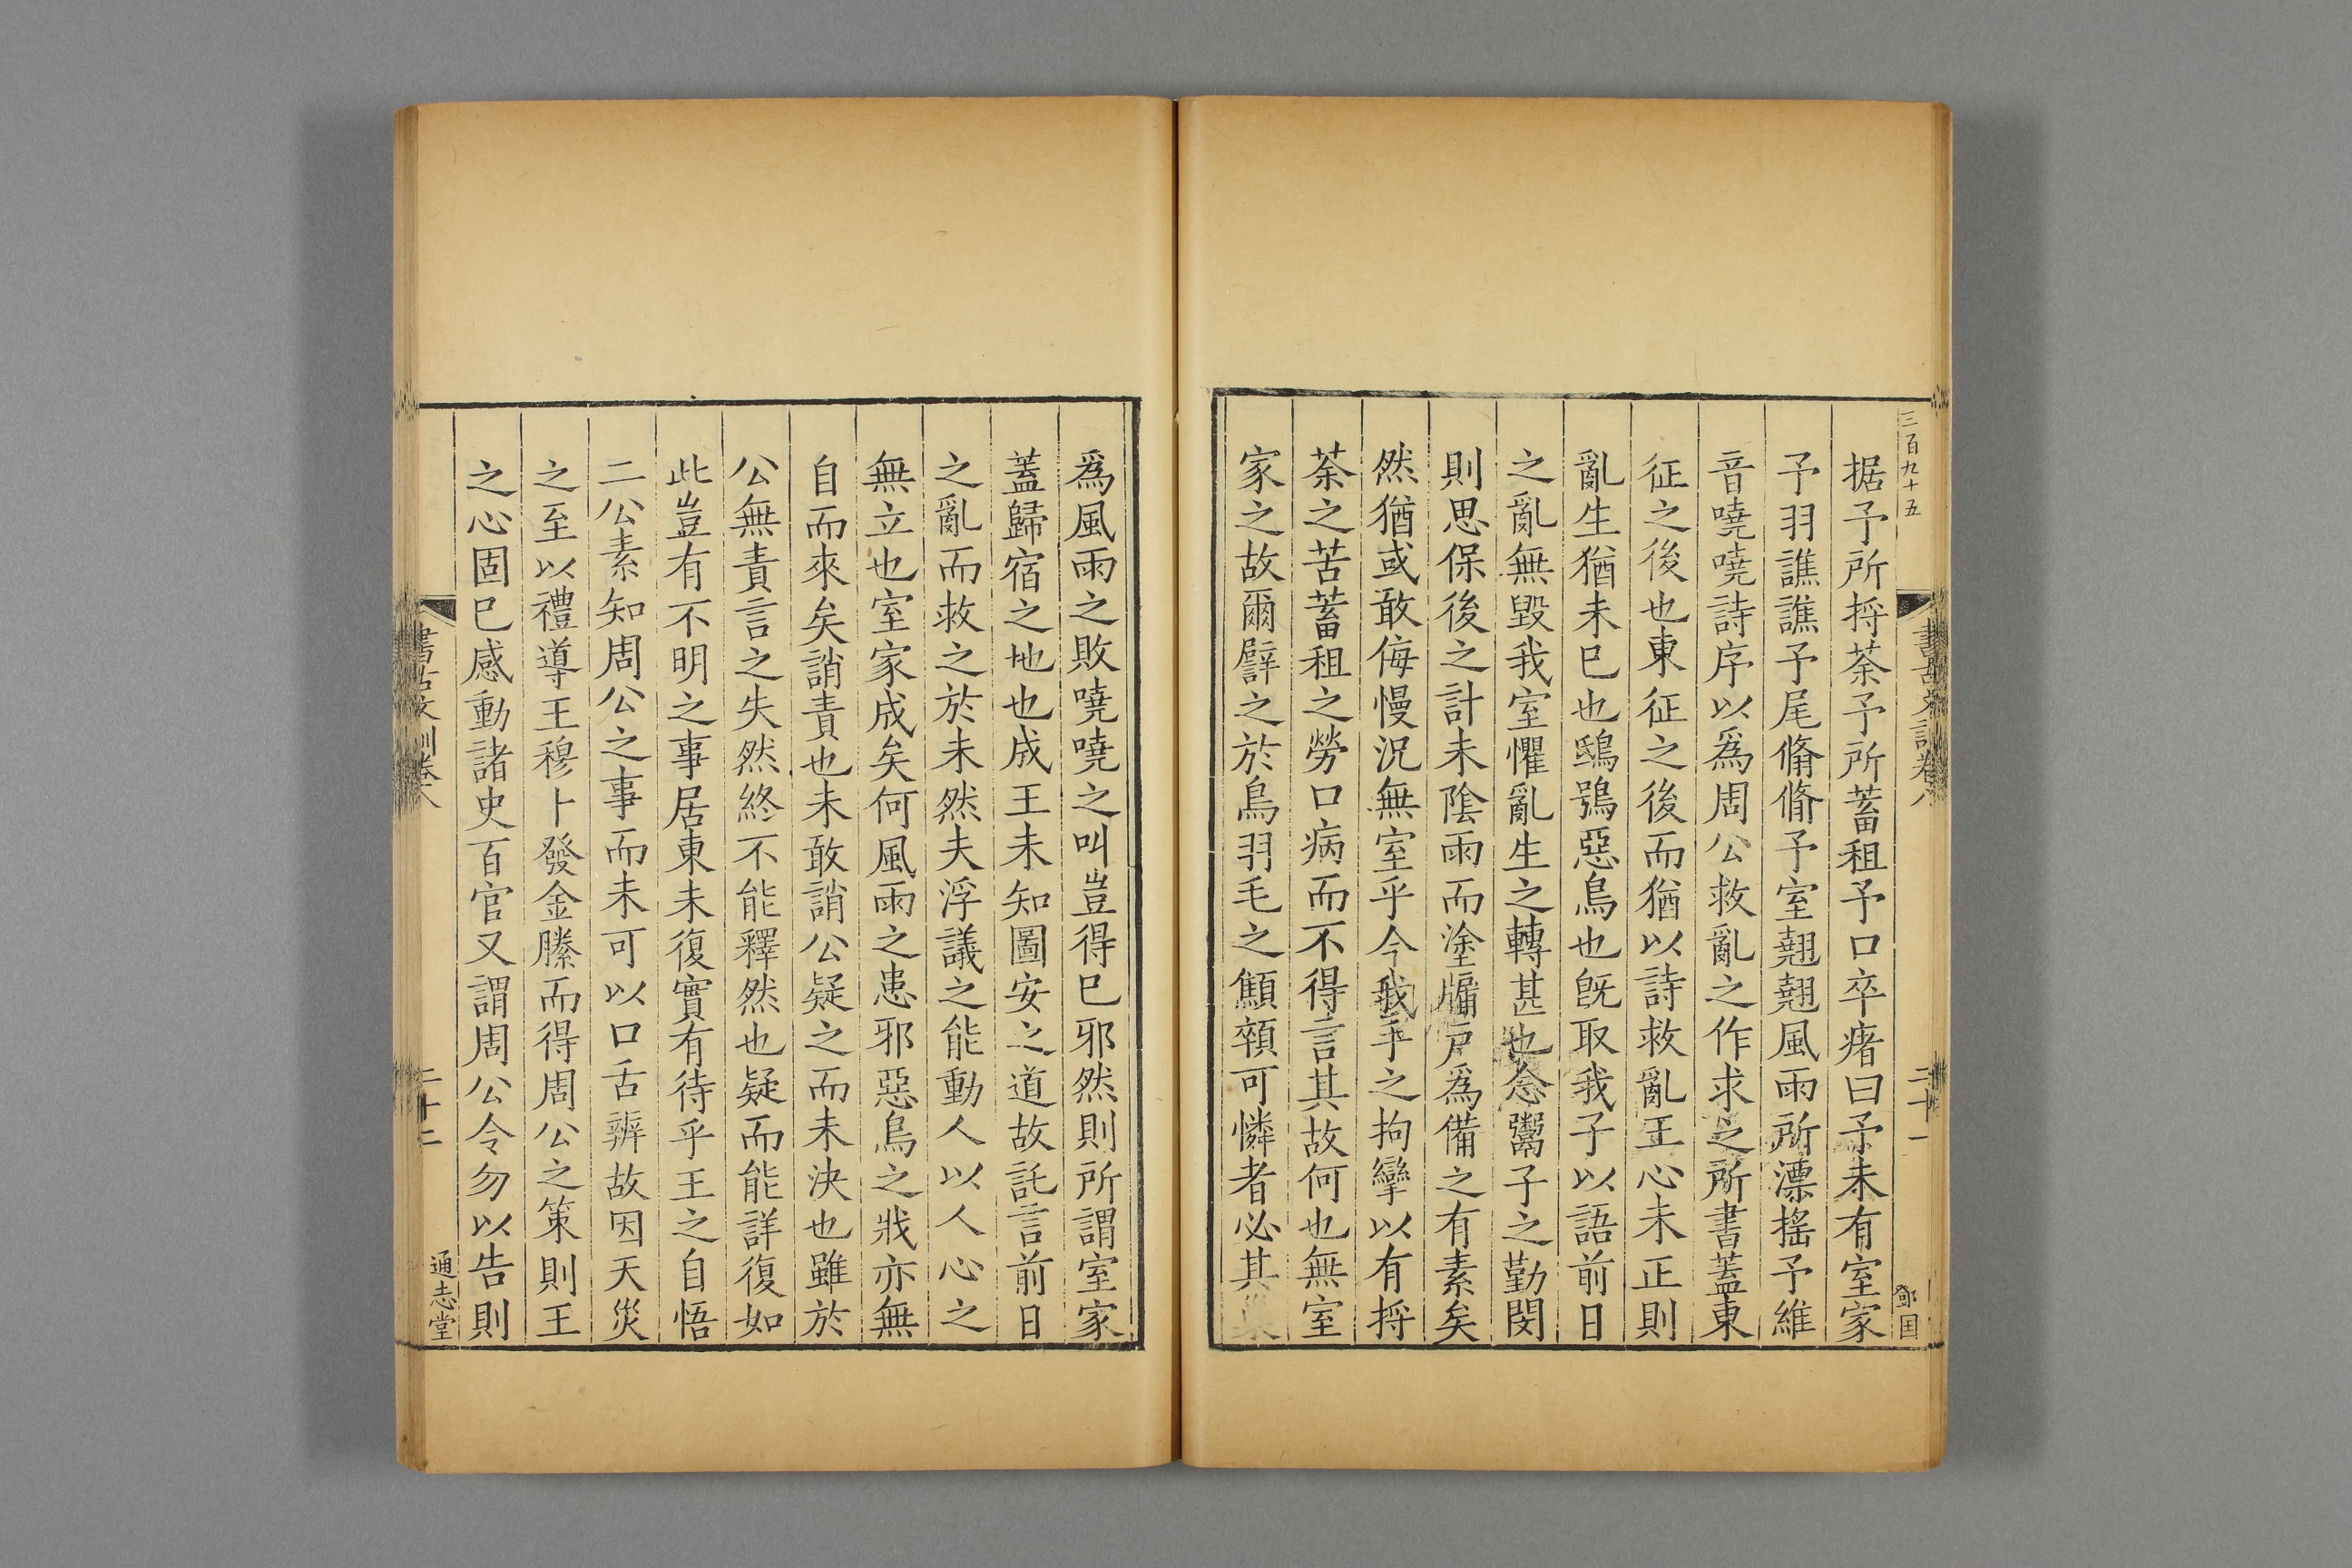 三百九十五
据予所捋荼予所蓄租予口卒瘏曰予未有室家
予羽譙譙予尾翛翛予室翹翹風雨所漂搖予維
音嘵嘵詩序以爲周公救亂之作求之所書蓋東
征之後也東征之後而猶以詩救亂王心未正則
亂生猶未已也鴟鴞惡鳥也旣取我子以語前日
之亂無毀我室懼亂生之轉甚也念鬻子之勤閔
則思保後之計未陰雨而塗牖戶爲備之有素矣
然猶或敢侮慢況無室乎今我手之拘攣以有捋
荼之苦蓄租之勞口病而不得言其故何也無室
家之故爾譬之於鳥羽毛之鷦顇可憐者必其
二十一
爲風雨之敗嘵嘵之叫豈得已邪然則所謂室家
蓋歸宿之地也成王未知圖安之道故託言前日
之亂而救之於未然夫浮議之能動人以人心之
無立也室家成矣何風雨之患邪惡鳥之戕亦無
自而來矣誚責也未敢誚公疑之而未決也雖於
公無責言之失然終不能釋然也疑而能詳復如
此豈有不明之事居東未復實有待乎王之自悟
二公素知周公之事而未可以口舌辨故因天災
之至以禮導王穆卜發金縢而得周公之策則王
之心固已感動諸史百官又謂周公令勿以告則
二十二
通志堂